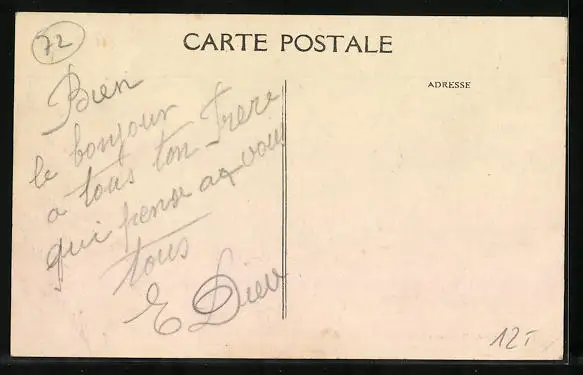 72
CARTE POSTALE
ADRESSE
Bien
le bonjour
a tous ton Frere
qui pense a vous
tous
E Dieu
12